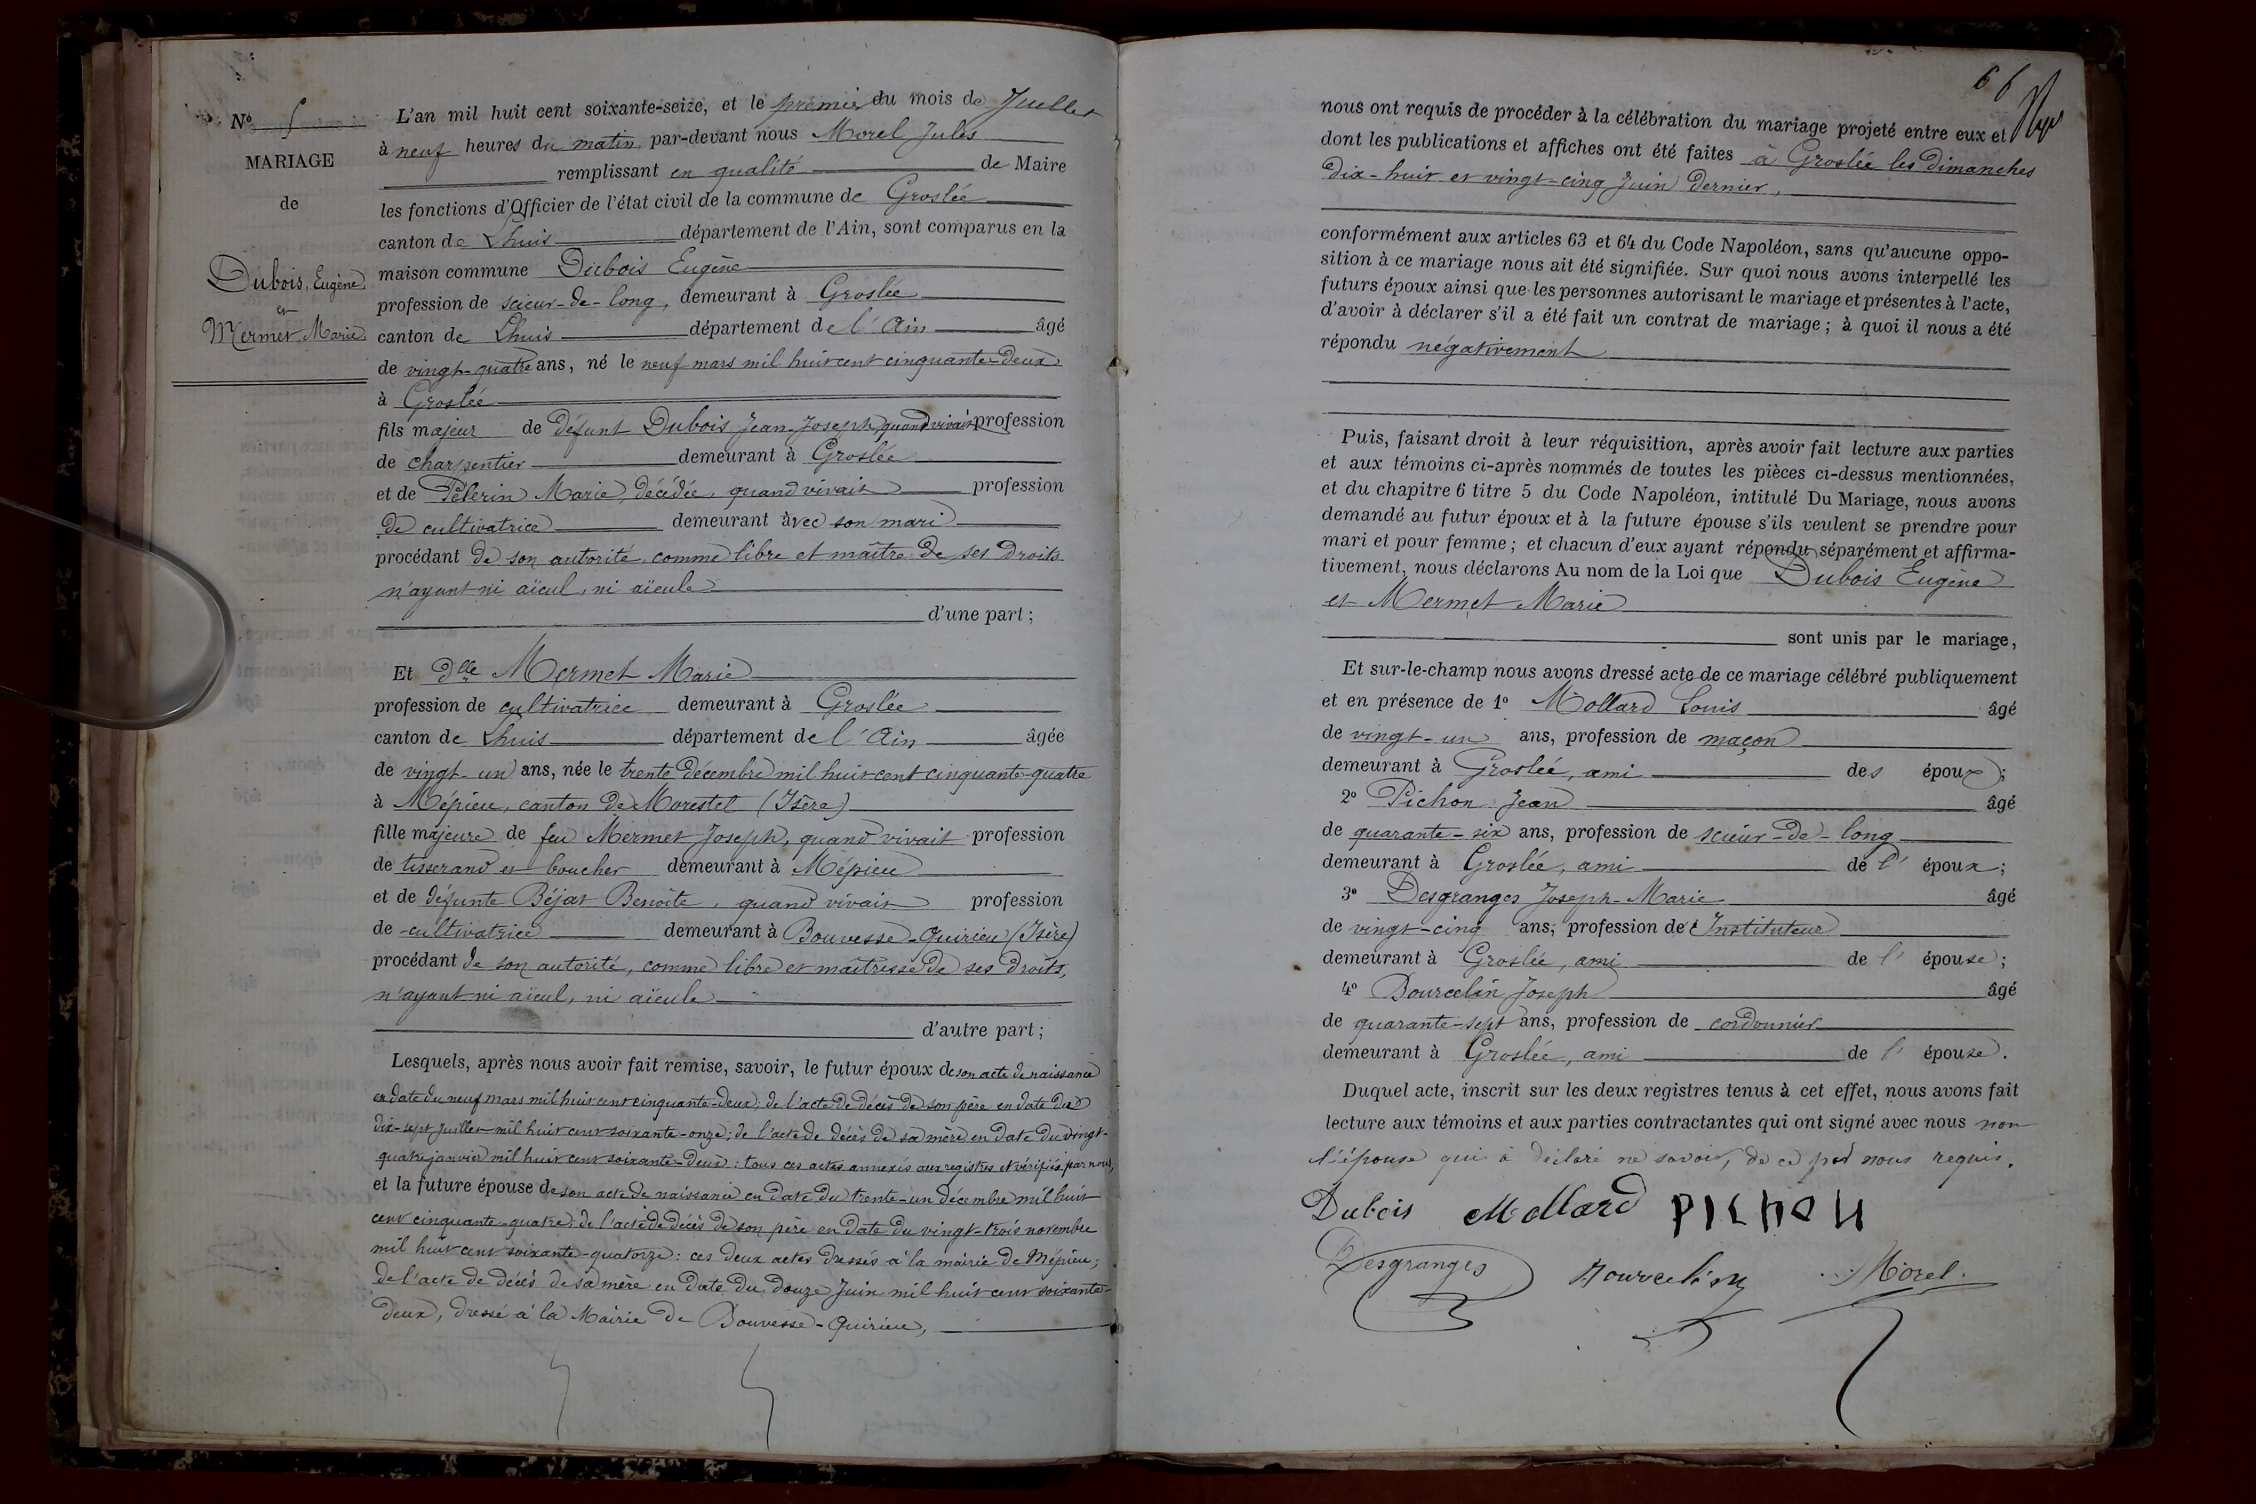 Nº 5
MARIAGE
de
Dubois, Eugène
et
Mermet Marie
L'an mil huit cent soixante-seize, et le premier du mois de Juillet
à neuf heures du matin, par-devant nous Morel Jules
remplissant en qualité de Maire
les fonctions d'Officier de l'état civil de la commune de Groslée
canton de Lhuis département de l'Ain, sont comparus en la
maison commune Dubois Eugène
profession de scieur-de-long, demeurant à Groslée
canton de Lhuis département de l'Ain âgé
de vingt-quatre ans, né le neuf mars mil huit cent cinquante-deux
à Groslée
fils majeur de défunt Dubois Jean-Joseph, quand vivait profession
de charpentier demeurant à Groslée
et de Pélerin Marie, décédée, quand vivait profession
de cultivatrice demeurant avec son mari
procédant de son autorité comme libre et maître de ses droits
n'ayant ni aïeul, ni aïeule
d'une part;
Et dlle Mermet Marie
profession de cultivatrice demeurant à Groslée
canton de Lhuis département de l'Ain âgée
de vingt-un ans, née le trente décembre mil huit cent cinquante-quatre
à Mépieu, canton de Morestel (Isère)
fille majeure de feu Mermet Joseph, quand vivait profession
de tisserand et boucher demeurant à Mépieu
et de défunte Béjat Benoîte, quand vivait profession
de cultivatrice demeurant à Bouvesse-Quirieu (Isère)
procédant de son autorité, comme libre et maîtresse de ses droits,
n'ayant ni aïeul, ni aïeule
d'autre part;
Lesquels, après nous avoir fait remise, savoir, le futur époux de son acte de naissance
en date du neuf mars mil huit cent cinquante-deux; de l'acte de décès de son père en date du
dix-sept juillet mil huit cent soixante-onze; de l'acte de décès de sa mère en date du vingt-
quatre janvier mil huit cent soixante-deux: tous ces actes annexés aux registres et vérifiés par nous,
et la future épouse de son acte de naissance en date du trente-un décembre mil huit
cent cinquante-quatre; de l'acte de décès de son père en date du vingt-trois novembre
mil huit cent soixante-quatorze: ces deux actes dressés à la mairie de Mépieu;
de l'acte de décès de sa mère en date du douze Juin mil huit cent soixante-
deux, dressé à la Mairie de Bouvesse-Quirieu,
66
nous ont requis de procéder à la célébration du mariage projeté entre eux et
dont les publications et affiches ont été faites à Groslée les dimanches
dix-huit et vingt-cinq Juin dernier,
conformément aux articles 63 et 64 du Code Napoléon, sans qu'aucune oppo-
sition à ce mariage nous ait été signifiée. Sur quoi nous avons interpellé les
futurs époux ainsi que les personnes autorisant le mariage et présentes à l'acte,
d'avoir à déclarer s'il a été fait un contrat de mariage; à quoi il nous a été
répondu négativement
Puis, faisant droit à leur réquisition, après avoir fait lecture aux parties
et aux témoins ci-après nommés de toutes les pièces ci-dessus mentionnées,
et du chapitre 6 titre 5 du Code Napoléon, intitulé Du Mariage, nous avons
demandé au futur époux et à la future épouse s'ils veulent se prendre pour
mari et pour femme; et chacun d'eux ayant répondu séparément et affirma-
tivement, nous déclarons Au nom de la Loi que Dubois Eugène
et Mermet Marie
sont unis par le mariage,
Et sur-le-champ nous avons dressé acte de ce mariage célébré publiquement
et en présence de 1º Mollard Louis âgé
de vingt-un ans, profession de maçon
demeurant à Groslée, ami des époux;
2º Pichon Jean âgé
de quarante-six ans, profession de scieur-de-long
demeurant à Groslée, ami de l'époux;
3º Desgranges Joseph-Marie âgé
de vingt-cinq ans, profession d'Instituteur
demeurant à Groslée, ami de l'épouse;
4º Bourcelin Joseph âgé
de quarante-sept ans, profession de cordonnier
demeurant à Groslée, ami de l'épouse.
Duquel acte, inscrit sur les deux registres tenus à cet effet, nous avons fait
lecture aux témoins et aux parties contractantes qui ont signé avec nous non
l'épouse qui a déclaré ne savoir, de ce par nous requis.
Dubois Mollard PICHON
Desgranges Bourcelin Morel